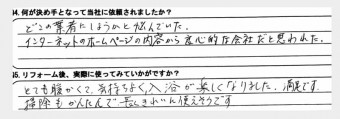 4. 何が決め手となって当社に依頼されましたか?
どこの業者にしようかと悩んでいた。
インターネットのホームページの内容から良心的な会社だと思われた。
5. リフォーム後、実際に使ってみていかがですか?
とても暖かくて、気持ちよく入浴が楽しくなりました。満足です。
掃除もかんたんで長くきれいに使えそうです